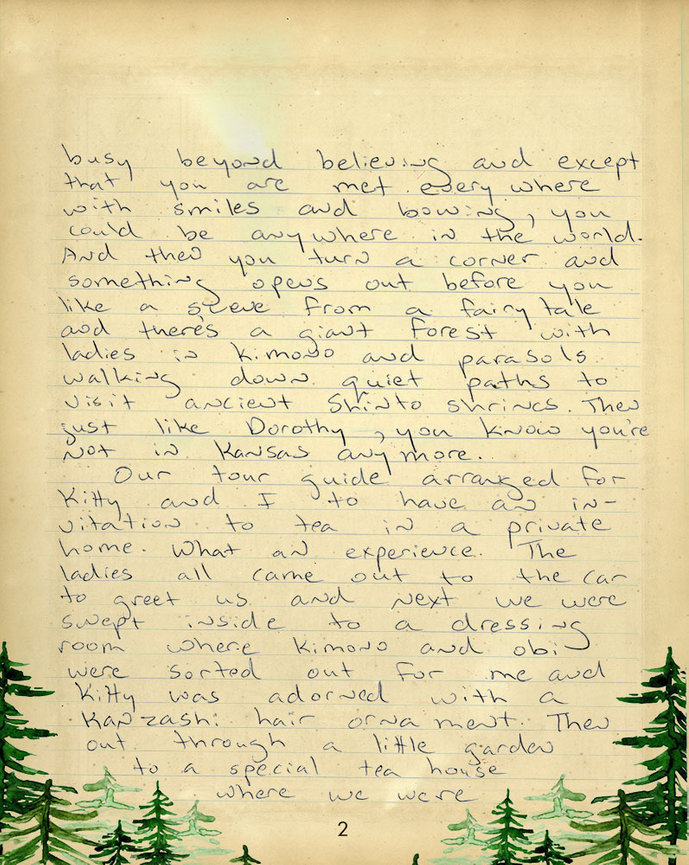 busy beyond believing and except
that you are met everywhere
with smiles and bowing, you
could be anywhere in the world.
And then you turn a corner and
something opens out before you
like a scene from a fairy tale
and there's a giant forest with
ladies in kimono and parasols
walking down quiet paths to
visit ancient Shinto shrines. Then
just like Dorothy, you know you're
not in Kansas anymore.
Our tour guide arranged for
Kitty and I to have an in-
vitation to tea in a private
home. What an experience. The
ladies all came out to the car
to greet us and next we were
swept inside to a dressing
room where kimono and obi
were sorted out for me and
Kitty was adorned with a
Kanzashi hair ornament. Then
out through a little garden
to a special tea house
where we were
2